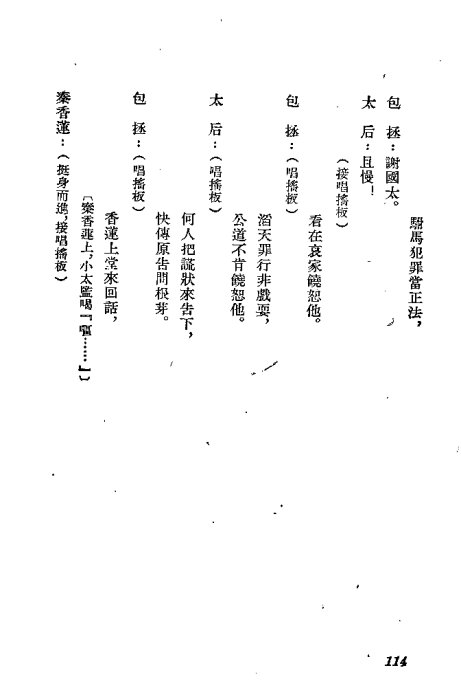 駙馬犯罪當正法,
包　拯:謝國太。
太　后:且慢!
(接唱搖板)
看在哀家饒恕他。
包　拯:(唱搖板)
滔天罪行非戲耍,
公道不肯饒恕他。
太　后:(唱搖板)
何人把謊狀來告下,
快傳原告問根芽。
包　拯:(唱搖板)
香蓮上堂來回話,
〔秦香蓮上,小太監喝『嗻……』〕
秦香蓮:(挺身而進,接唱搖板)
114